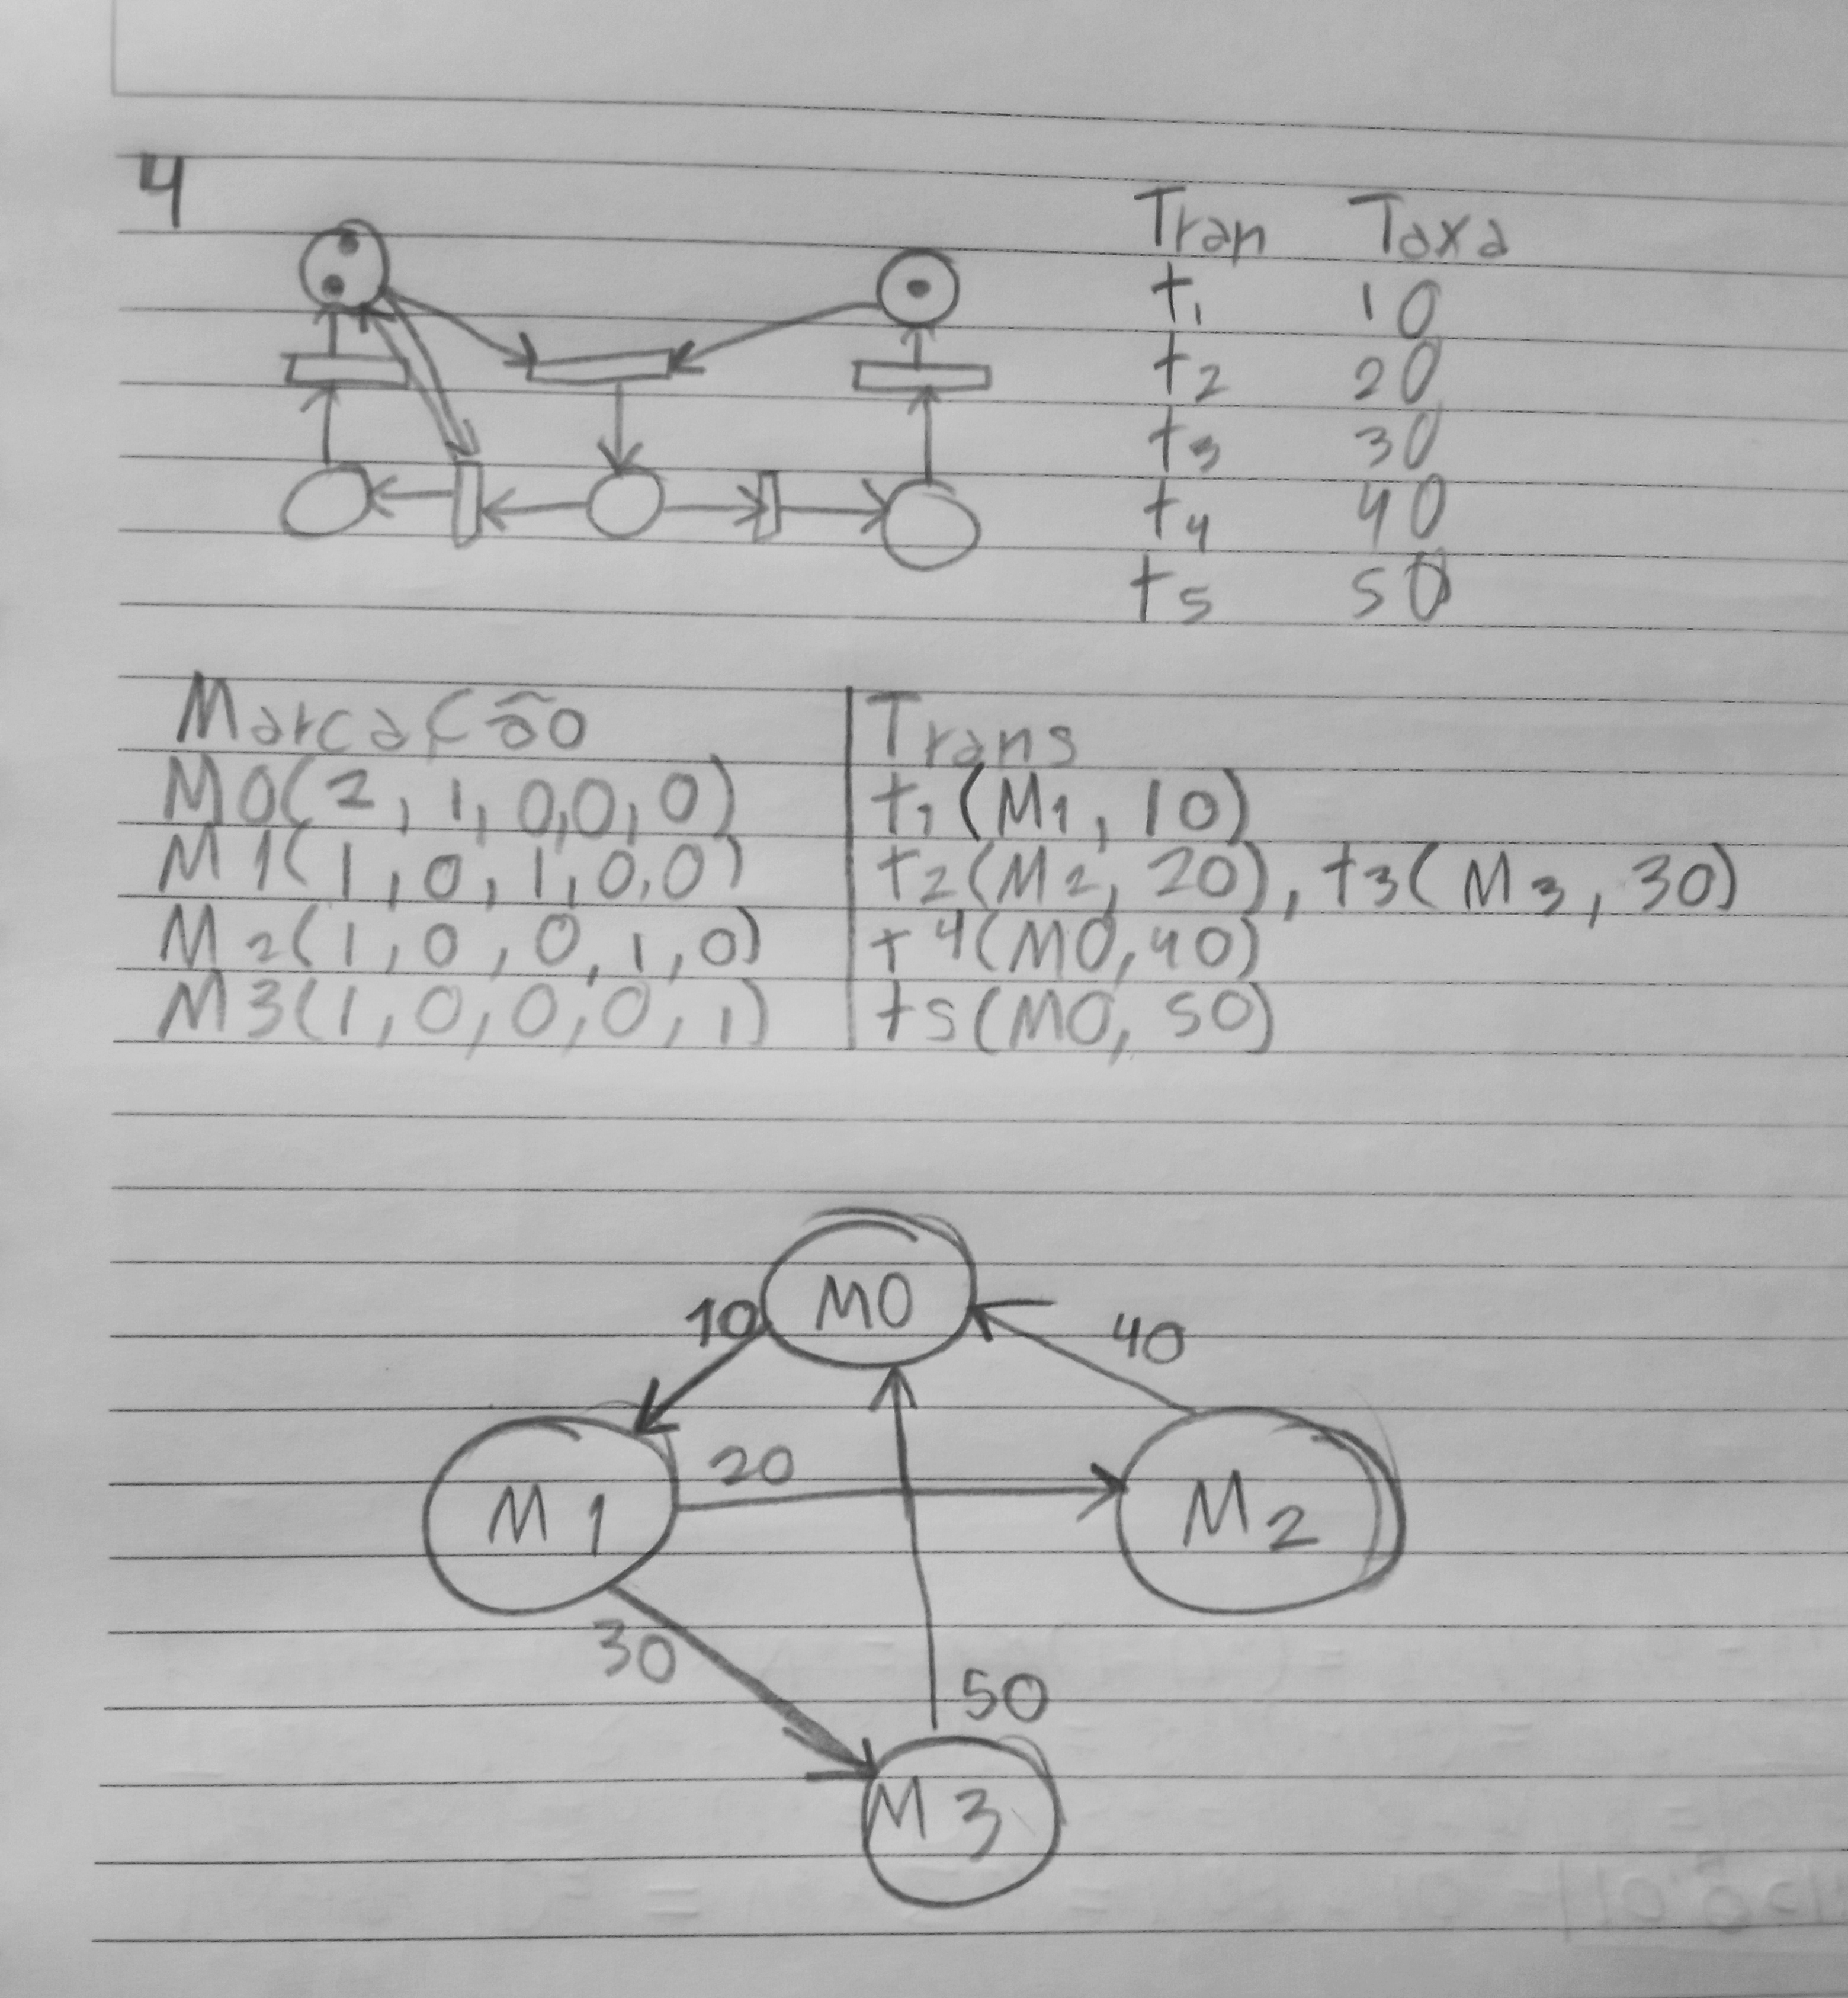 4
Tran Taxa
t1 10
t2 20
t3 30
t4 40
t5 50
Marcação Trans
M0(2, 1, 0, 0, 0) t1(M1, 10)
M1(1, 0, 1, 0, 0) t2(M2, 20), t3(M3, 30)
M2(1, 0, 0, 1, 0) t4(M0, 40)
M3(1, 0, 0, 0, 1) t5(M0, 50)
M0
10 40
20
M1 M2
30
50
M3